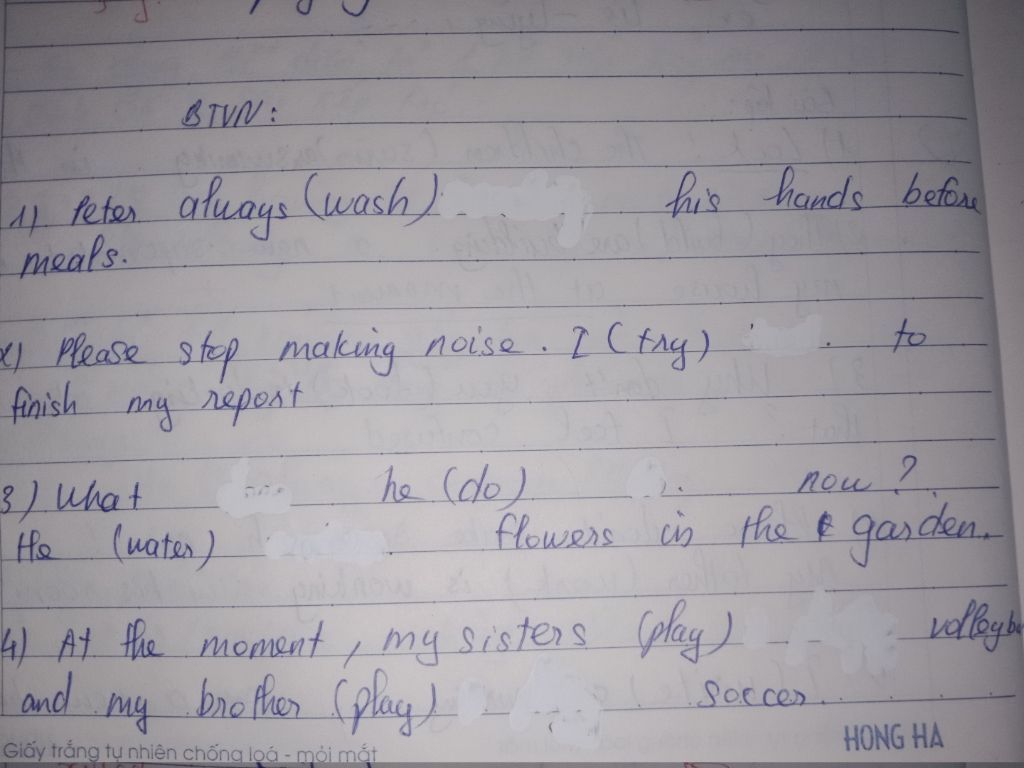 BTVN:
1) Peter always (wash) his hands before
meals.
2) Please stop making noise. I (try) to
finish my report
3) What he (do) now?
He (water) flowers in the garden.
4) At the moment, my sisters (play) volleyba
and my brother (play) soccer.
Giấy trắng tự nhiên chống loá - mỏi mắt
HONG HA